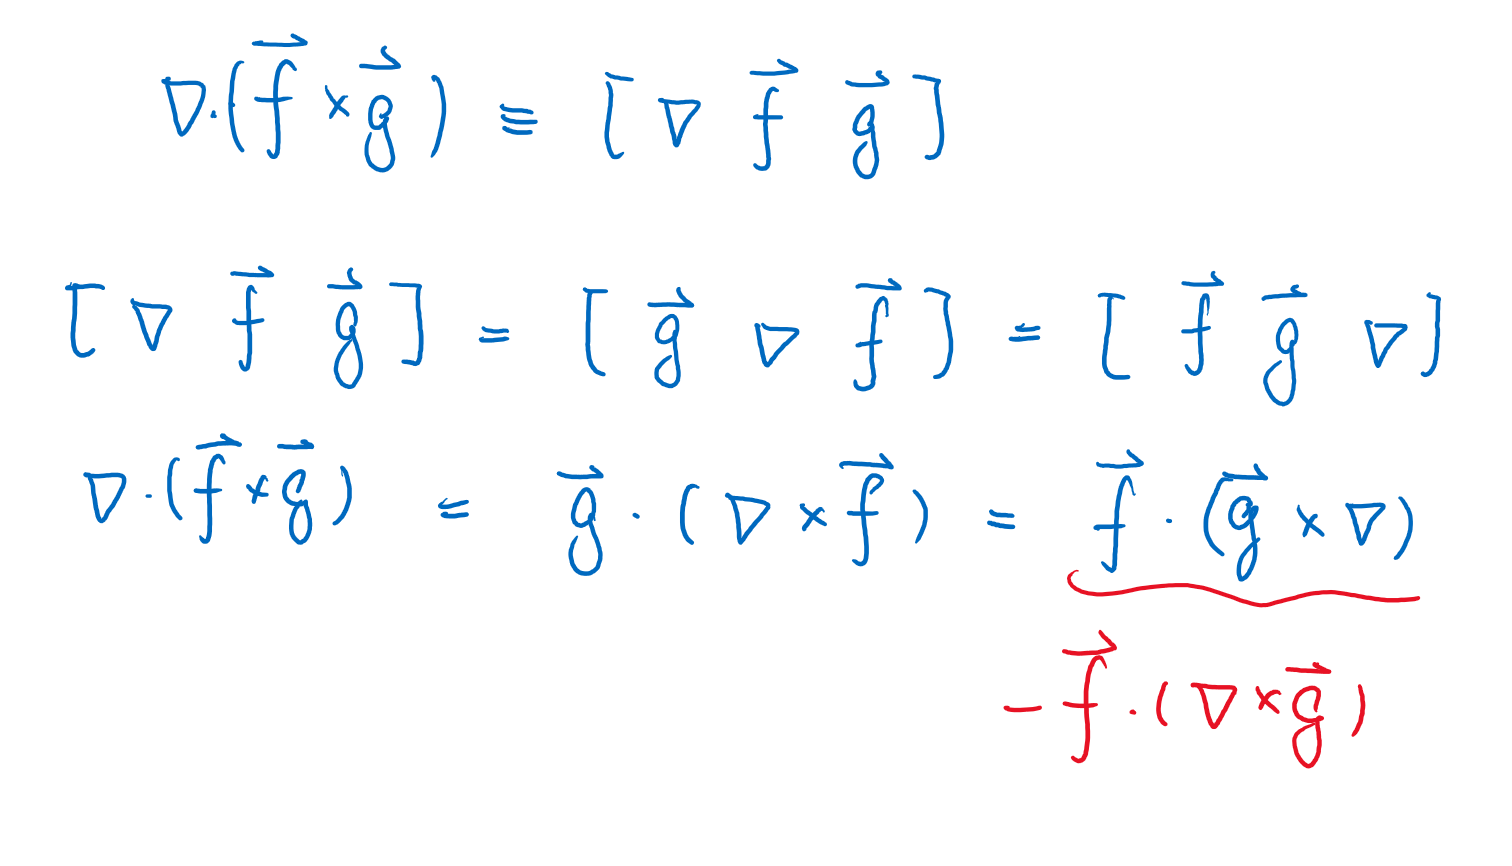 ∇·(f⃗ × g⃗) ≡ [∇ f⃗ g⃗]
[∇ f⃗ g⃗] = [g⃗ ∇ f⃗] = [f⃗ g⃗ ∇]
∇·(f⃗ × g⃗) = g⃗·(∇ × f⃗) = f⃗·(g⃗ × ∇)
−f⃗·(∇ × g⃗)